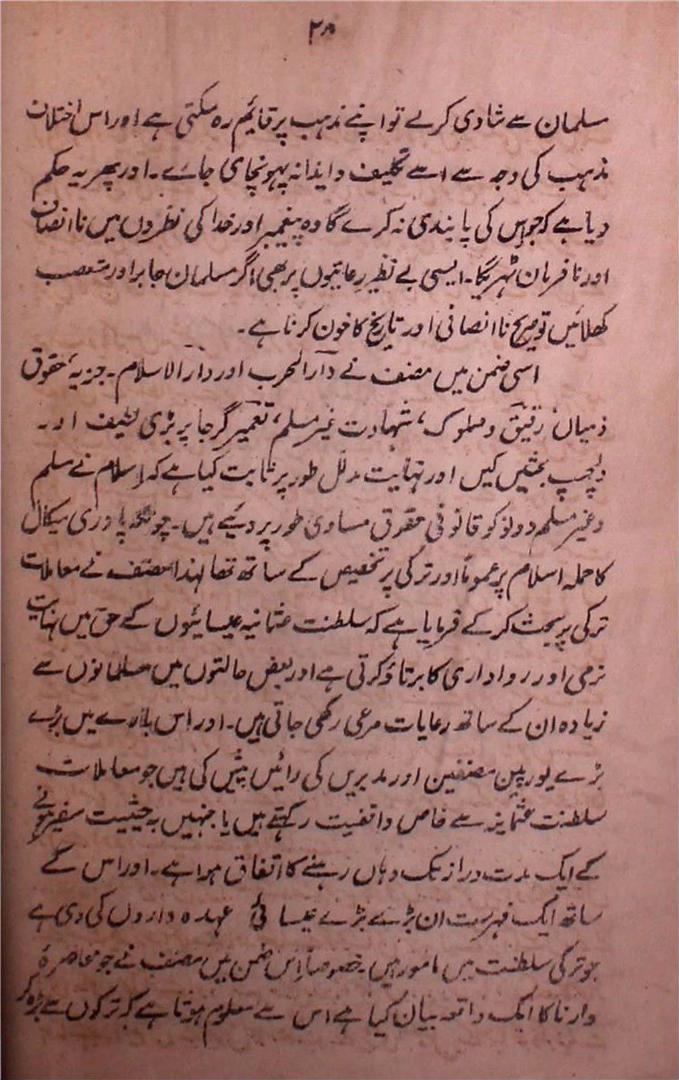 ۲۸
مسلمان سے شادی کرلے تو اپنے مذہب پر قایم رہ سکتی ہے اور اس اختلاف
مذہب کی وجہ سے اسے تکلیف و ایذا نہ پہونچای جاے۔ اور پھر یہ حکم
دیا ہے کہ جو اس کی پابندی نہ کرے گا وہ پیغمبر اور خدا کی نظروں میں ناانصاف
اور نافرمان ٹہریگا۔ ایسی بے نظیر رعایتوں پر بھی اگر مسلمان جابر اور متعصب
کہلائیں تو صریح ناانصافی اور تاریخ کا خون کرنا ہے۔
اسی ضمن میں مصنف نے دارالحرب اور دارالاسلام۔ جزیہ حقوق
ذمیان، رقیق و مملوک، شہادت غیر مسلم، تعمیر گرجا پر بڑی لطیف اور۔
دلچسپ بحثیں کیں اور نہایت مدلل طور پر ثابت کیا ہے کہ اسلام نے مسلم
و غیر مسلم دونو کو قانونی حقوق مساوی طور پر دیئے ہیں۔ چونکہ پادری میکال
کا حملہ اسلام پر عموماً اور ترکی پر تخصیص کے ساتھ تھا لہذا مصنف نے معاملات
ترکی پر بحث کر کے فرمایا ہے کہ سلطنت عثمانیہ عیسائیوں کے حق میں نہایت
نرمی اور رواداری کا برتاؤ کرتی ہے اور بعض حالتوں میں مسلمانوں سے
زیادہ ان کے ساتھ رعایات مرعی رکھی جاتی ہیں۔ اور اس بارے میں بڑے
بڑے یورپین مصنفین اور مدبرین کی رائیں پیش کی ہیں جو معاملات
سلطنت عثمانیہ سے خاص واقفیت رکہتے ہیں یا جنہیں بہ حیثیت سفیر ہونے
کے ایک مدت دراز تک وہاں رہنے کا اتفاق ہوا ہے۔ اور اس کے
ساتھ ایک فہرست ان بڑے بڑے عیسائی عہدہ داروں کی دی ہے
جو ترکی سلطنت میں مامور ہیں خصوصاً اس ضمن میں مصنف نے جو محاصرۂ
وارنا کا ایک واقعہ بیان کیا ہے اس سے معلوم ہوتا ہے کہ ترکوں سے بڑہ کر